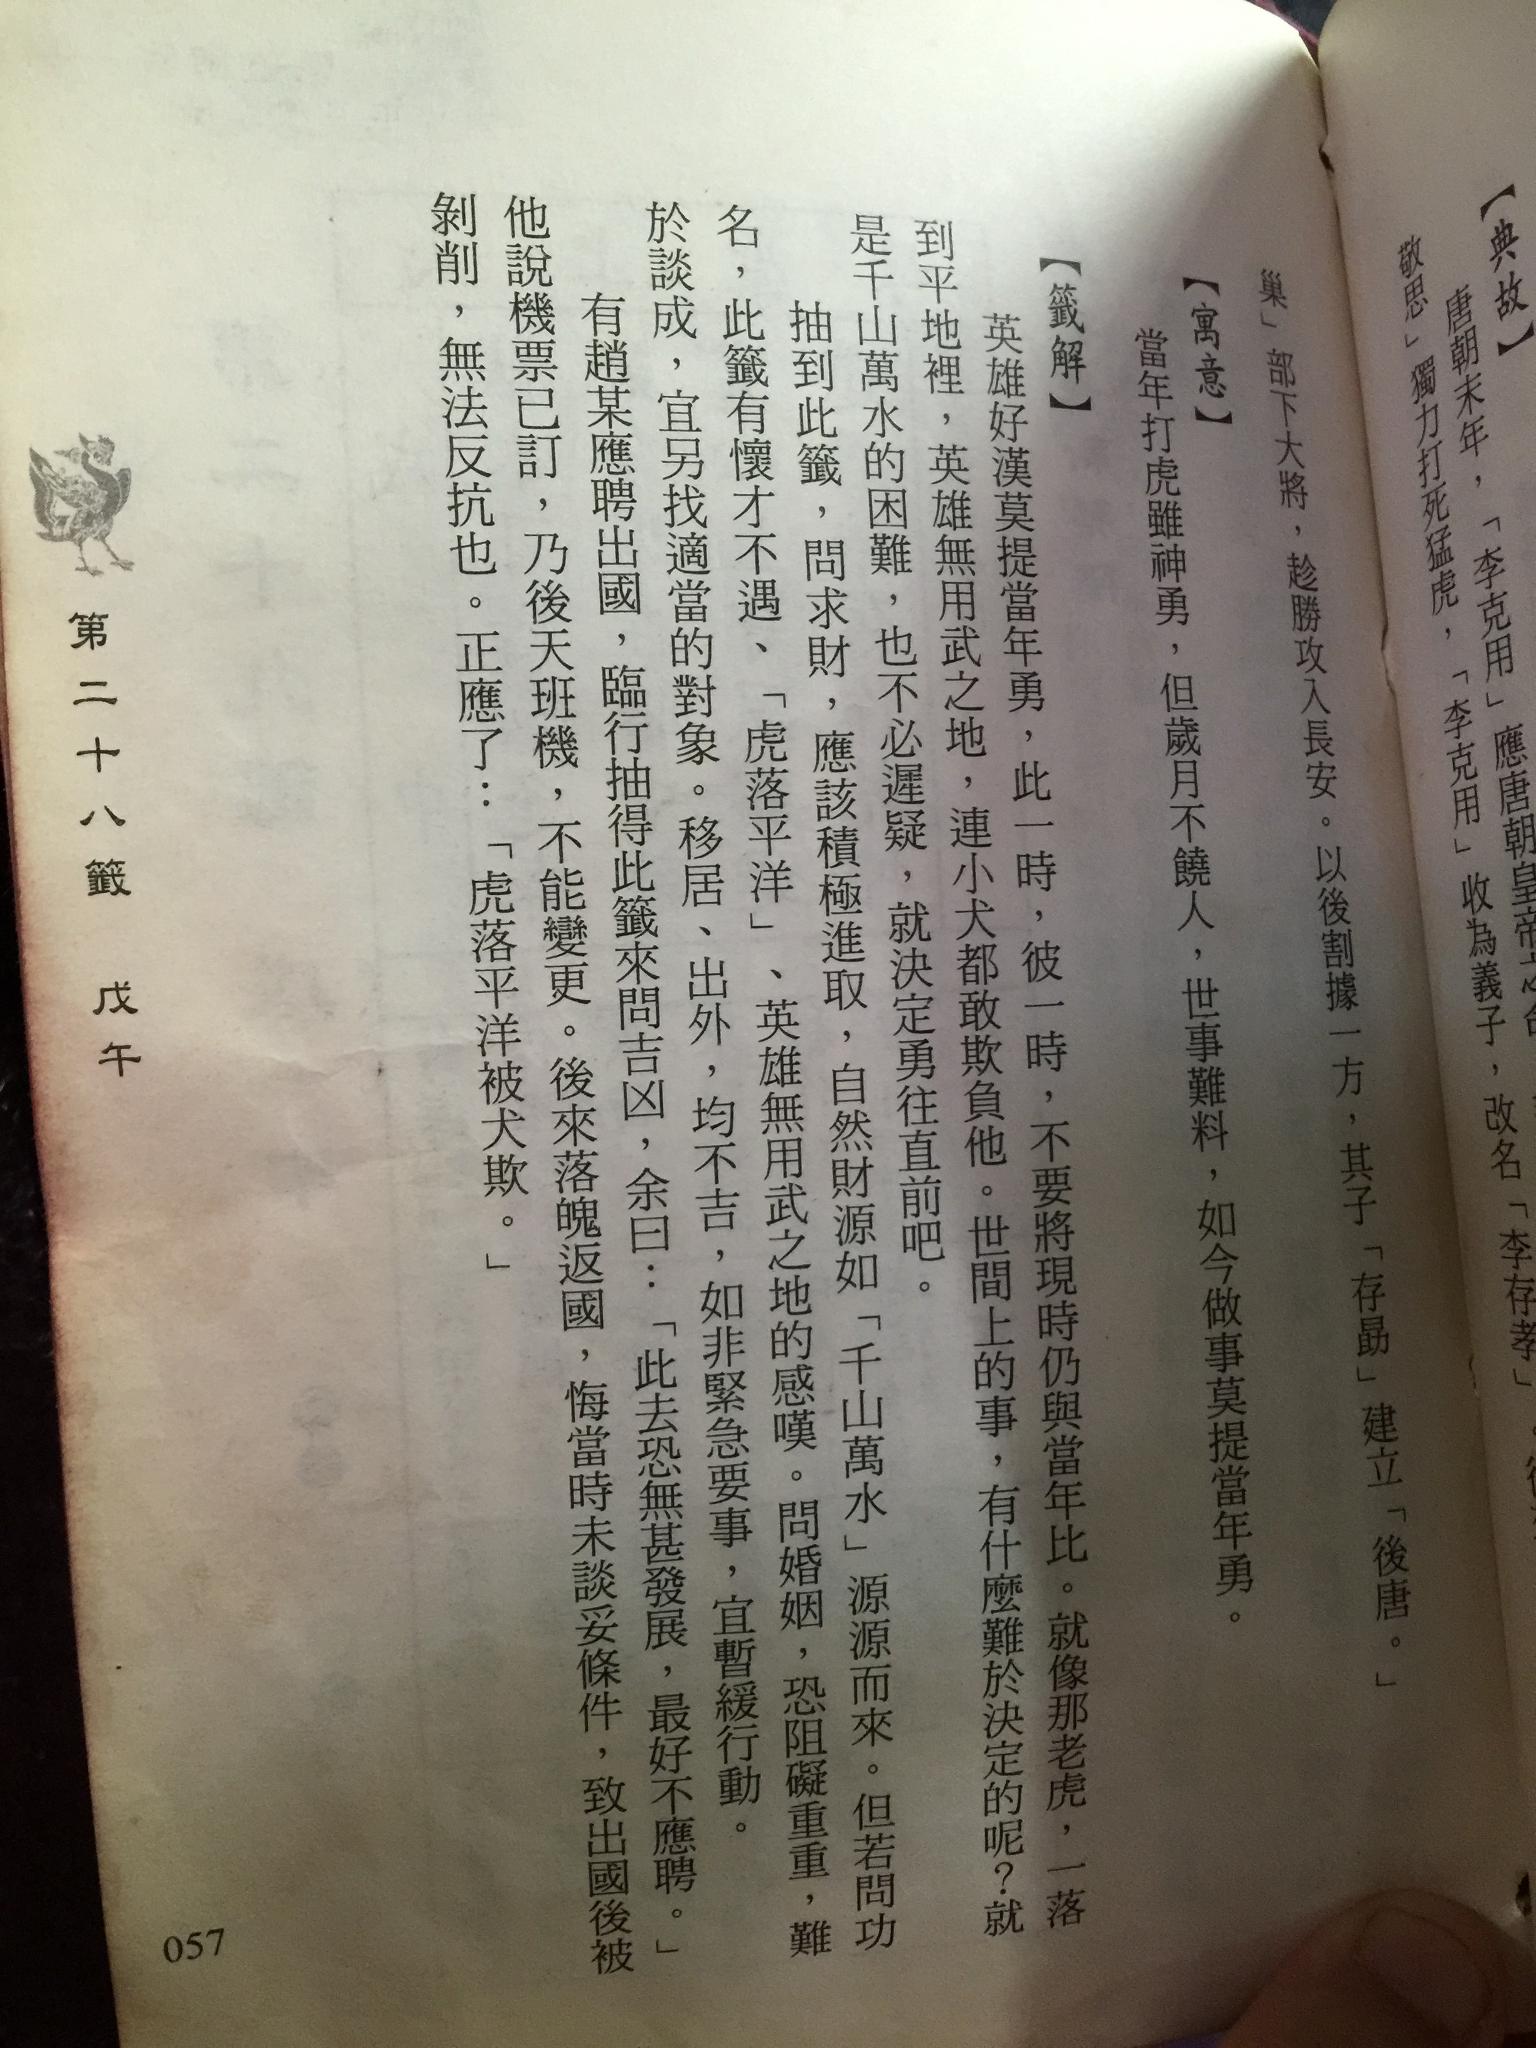 【典故】
唐朝末年，「李克用」應唐朝皇帝之
敬思」獨力打死猛虎，「李克用」收為義子，改名「李存孝」。
巢」部下大將，趁勝攻入長安。以後割據一方，其子「存勗」建立「後唐。」
【寓意】
當年打虎雖神勇，但歲月不饒人，世事難料，如今做事莫提當年勇。
【籤解】
英雄好漢莫提當年勇，此一時，彼一時，不要將現時仍與當年比。就像那老虎，一落
到平地裡，英雄無用武之地，連小犬都敢欺負他。世間上的事，有什麼難於決定的呢？就
是千山萬水的困難，也不必遲疑，就決定勇往直前吧。
抽到此籤，問求財，應該積極進取，自然財源如「千山萬水」源源而來。但若問功
名，此籤有懷才不遇、「虎落平洋」、英雄無用武之地的感嘆。問婚姻，恐阻礙重重，難
於談成，宜另找適當的對象。移居、出外，均不吉，如非緊急要事，宜暫緩行動。
有趙某應聘出國，臨行抽得此籤來問吉凶，余曰：「此去恐無甚發展，最好不應聘。」
他說機票已訂，乃後天班機，不能變更。後來落魄返國，悔當時未談妥條件，致出國後被
剝削，無法反抗也。正應了：「虎落平洋被犬欺。」
第二十八籤 戊午
057